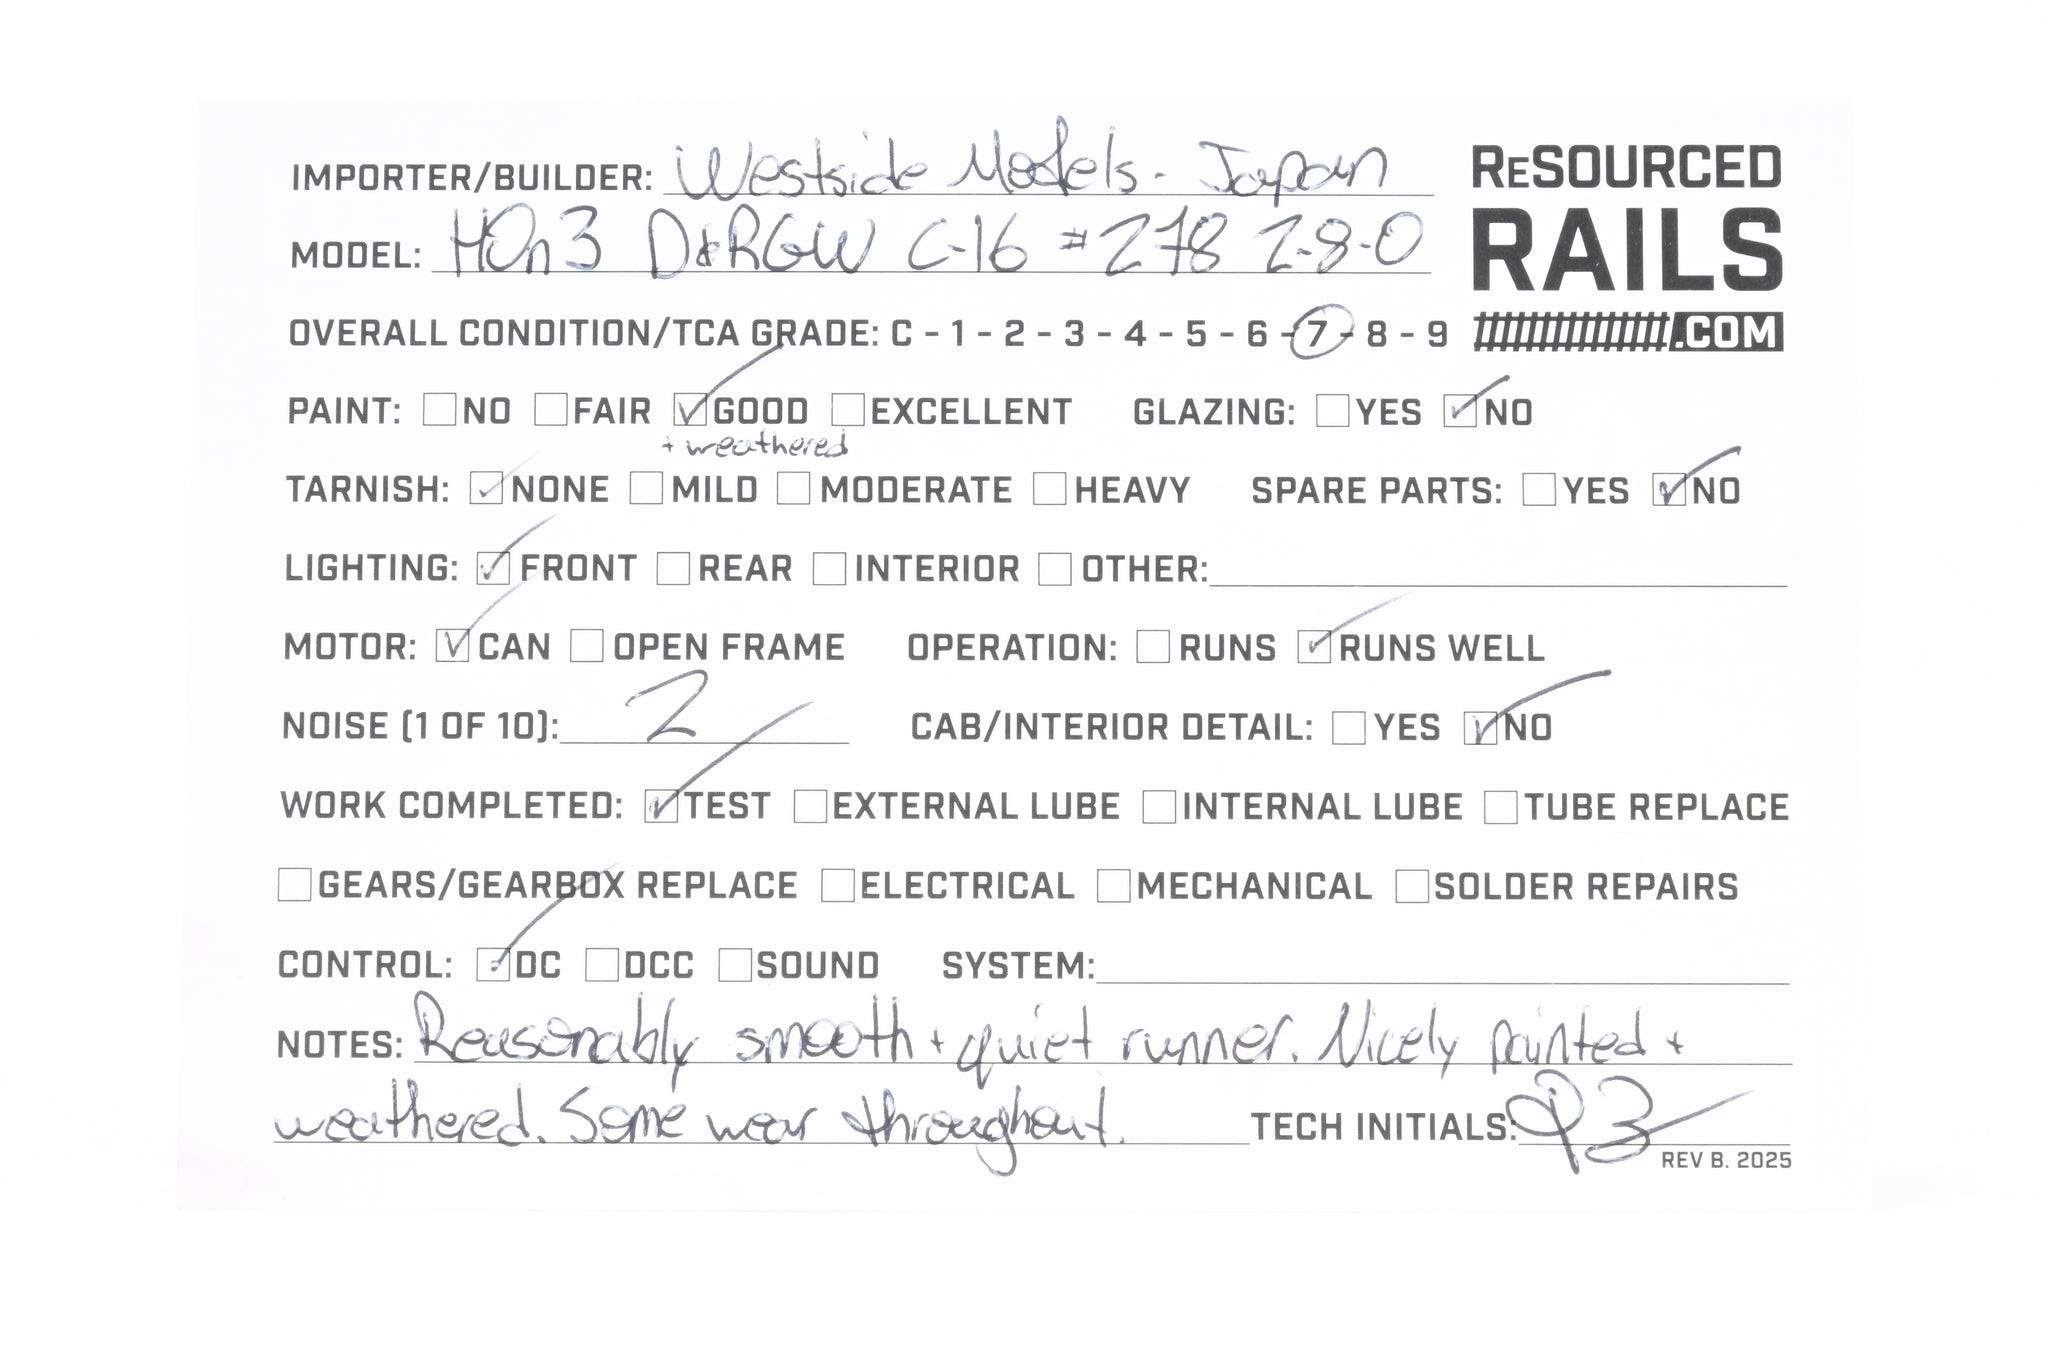 IMPORTER/BUILDER: Westside Models - Japan
ReSOURCED
RAILS
.COM
MODEL: HOn3 D&RGW C-16 #278 2-8-0
OVERALL CONDITION/TCA GRADE: C - 1 - 2 - 3 - 4 - 5 - 6 - 7 - 8 - 9
PAINT: ☐NO ☐FAIR ☑GOOD ☐EXCELLENT GLAZING: ☐YES ☑NO
+ weathered
TARNISH: ☑NONE ☐MILD ☐MODERATE ☐HEAVY SPARE PARTS: ☐YES ☑NO
LIGHTING: ☑FRONT ☐REAR ☐INTERIOR ☐OTHER:
MOTOR: ☑CAN ☐OPEN FRAME OPERATION: ☐RUNS ☑RUNS WELL
NOISE (1 OF 10): 2 CAB/INTERIOR DETAIL: ☐YES ☑NO
WORK COMPLETED: ☑TEST ☐EXTERNAL LUBE ☐INTERNAL LUBE ☐TUBE REPLACE
☐GEARS/GEARBOX REPLACE ☐ELECTRICAL ☐MECHANICAL ☐SOLDER REPAIRS
CONTROL: ☑DC ☐DCC ☐SOUND SYSTEM:
NOTES: Reasonably smooth + quiet runner. Nicely painted +
weathered. Some wear throughout. TECH INITIALS:
REV B. 2025